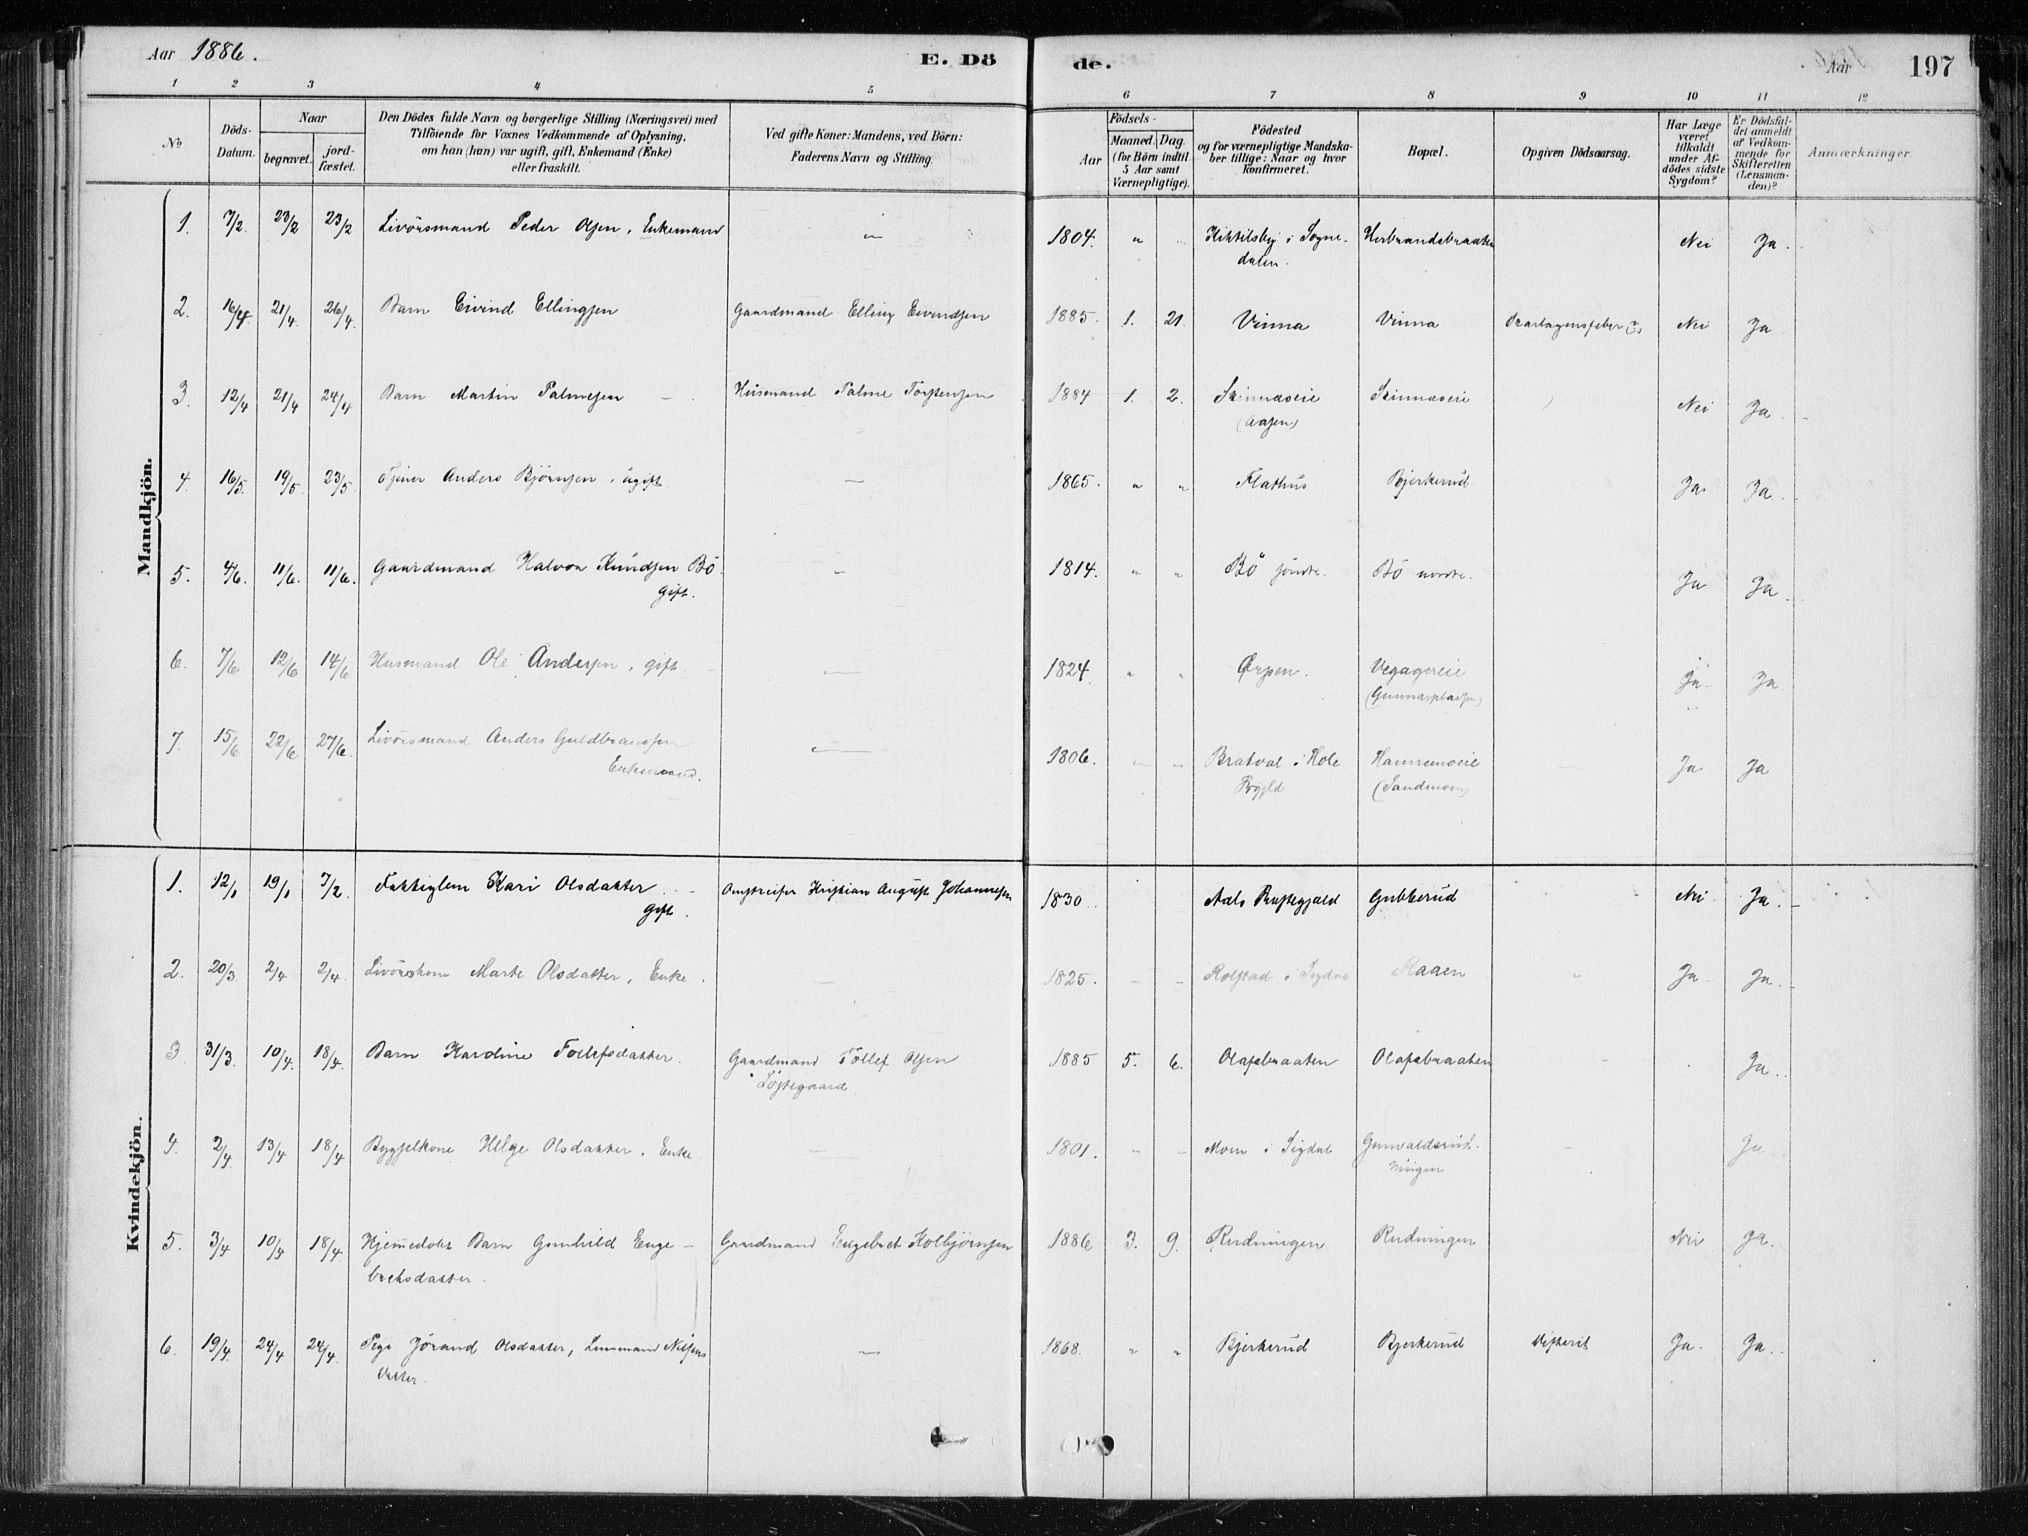 Aar 1886.
E. Dö
de.
Aar
197
1 2 3 4 5 6 7 8 9 10 11 12
No
Döds-Datum.
Naar
begravet.
jord-fæstet.
Den Dödes fulde Navn og borgerlige Stilling (Næringsvei) med
Tilföiende for Voxnes Vedkommende af Oplysning,
om han (hun) var ugift, gift, Enkemand (Enke)
eller fraskilt.
Ved gifte Koner: Mandens, ved Börn:
Faderens Navn og Stilling.
Födsels-
Aar
Maaned. Dag.
(for Börn indtil
5 Aar samt
Værnepligtige).
Födested
og for værnepligtige Mandska-
ber tillige: Naar og hvor
konfirmeret.
Bopæl.
Opgiven Dödsaarsag.
Har Læge
været
tilkaldt
under Af-
dödes sidste
Sygdom?
Er Dödsfal-
det anmeldt
af Vedkom-
mende for
Skifteretten
(Lensman-
den)?
Anmærkninger.
Mandkjön.
1. 7/2. 23/2 23/2 Livörsmand Peder Olsen, Enkemand " 1804. " " i Sogne- Herbrandsbraaten Nei Ja.
dalen.
2. 16/4. 21/4. 26/4. Barn Eivind Ellingsen Gaardmand Elling Eivindsen 1885. 1. 21. Vinna Vinna Skarlagensfeber (?) Nei Ja
3. 12/4 21/4 24/4 Barn Martin Palmesen Husmand Palme Torstensen 1884 1. 2. Skinnæseie Skinnæseie Nei Ja.
(Aasen)
4. 16/5. 19/5 23/5. Tjener Anders Björnsen, ugift. — 1865. " " Flathus Bjerkerud Ja. Ja.
5. 4/6. 11/6. 11/6. Gaardmand Halvor Knudsen Bö. — 1814. " " Bö söndre. Bö nordre. Ja Ja.
gift.
6. 7/6 12/6 14/6 Husmand Ole Andersen, gift. — 1824. " " Ørpen. Vegagereie Ja Ja
(Gunnarpladsen)
7. 15/6 22/6 27/6. Livörsmand Anders Guldbransen — 1806. " " Bratval i Hole Hamremoeie Ja Ja
Enkemand. Prgjld (Sandmoen)
Kvindekjön.
1. 12/1 19/1 7/2. Fattiglem Kari Olsdatter. Omstreifer Kristian August Johannesen 1830. Aals Prestegjæld Gubberud Nei Ja.
gift.
2. 20/3. 2/4 2/4. Livörskone Marte Olsdatter, Enke. — 1825. — — Rolstad i Sigdal Raaen " Ja Ja.
3 31/3. 10/4. 18/4. Barn Karoline Tollefsdatter. Gaardmand Tollef Olsen 1885 5. 6. Olafsbraaten Olafsbraaten Ja.
Löjtegaard
4. 2/4. 13/4 18/4 Bygselkone Helge Olsdatter, Enke. — 1801. " " Moen i Sigdal Gunvaldsrud- Ja
5. 3/4 10/4 18/4. Hjemedöbt Barn Gunhild Enge- Gaardmand Engebret Kolbjörnsen 1886 3. 9. Rudningen Rudningen Nei Ja.
bretsdatter.
6. 19/4. 24/4 24/4. Pige Jörand Olsdatter, Lensmand Nilsens — 1868. " " Bjerkerud Bjerkerud Difterit Ja. Ja.
Datter.